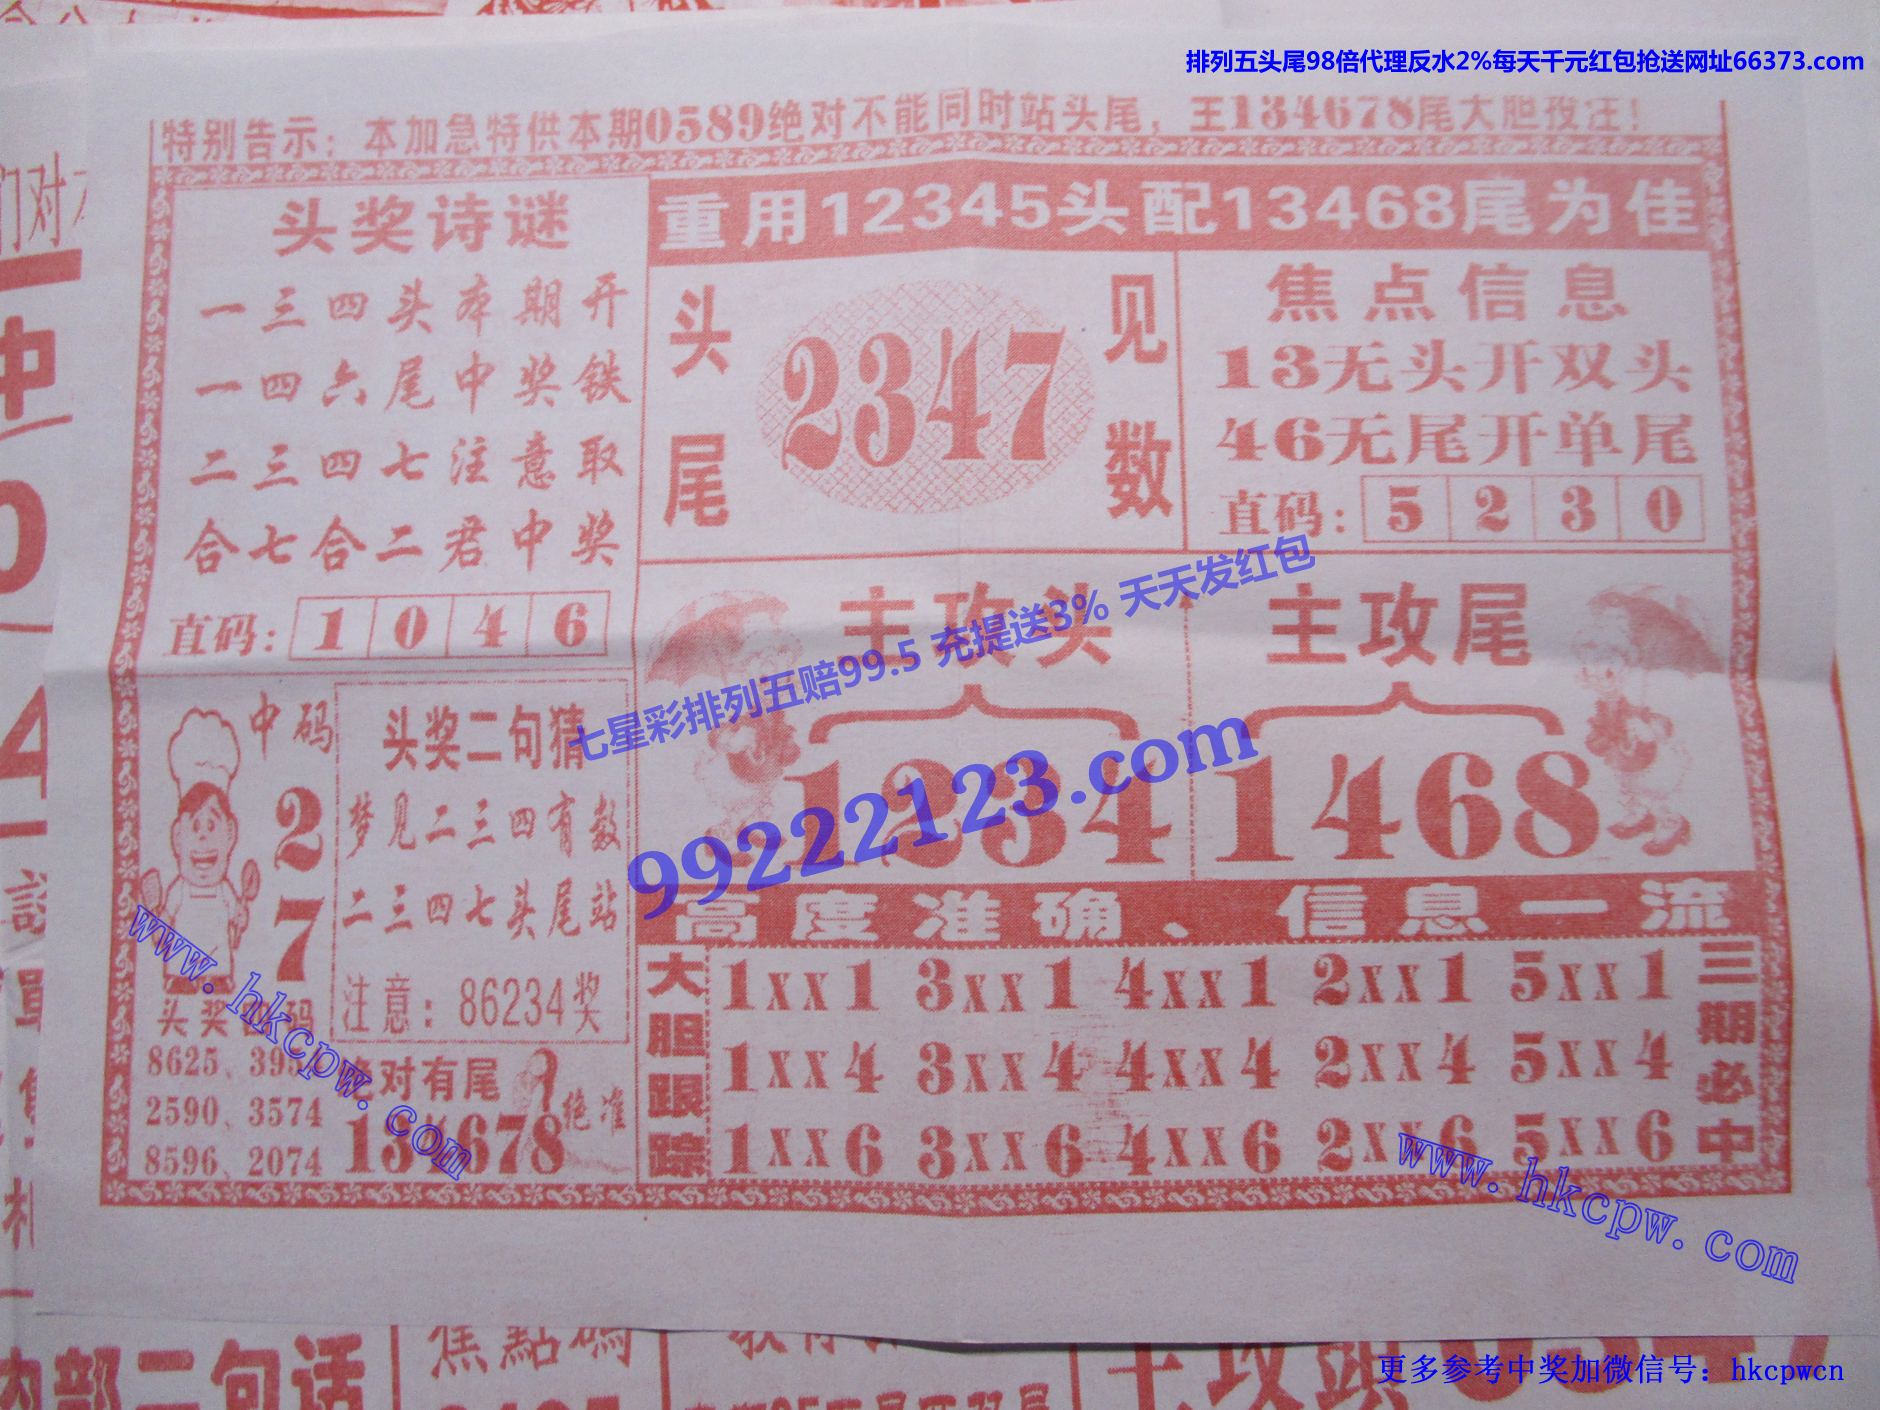 排列五头尾98倍代理反水2%每天千元红包抢送网址66373.com
特别告示：本加急特供本期0589绝对不能同时站头尾，王134678尾大胆投注！
重用12345头配13468尾为佳
头奖诗谜
一三四头本期开
一四六尾中奖铁
二三四七注意取
合七合二君中奖
直码：1 0 4 6
头尾
2347
见数
焦点信息
13无头开双头
46无尾开单尾
直码：5 2 3 0
主攻头
1234
主攻尾
1468
七星彩排列五赔99.5 充提送3% 天天发红包
99222123.com
中码
2
7
头奖二句猜
梦见二三四有数
二三四七头尾站
注意：86234奖
头奖
码
8625、
2590、3574
8596、2074
绝对有尾
134678
绝准
高度准确、信息一流
大胆跟踪
1XX1 3XX1 4XX1 2XX1 5XX1
1XX4 3XX4 4XX4 2XX4 5XX4
1XX6 3XX6 4XX6 2XX6 5XX6
三期必中
www.hkcpw.com
www.hkcpw.com
们对
内部二句话
焦點碼
更多参考中奖加微信号：hkcpwcn